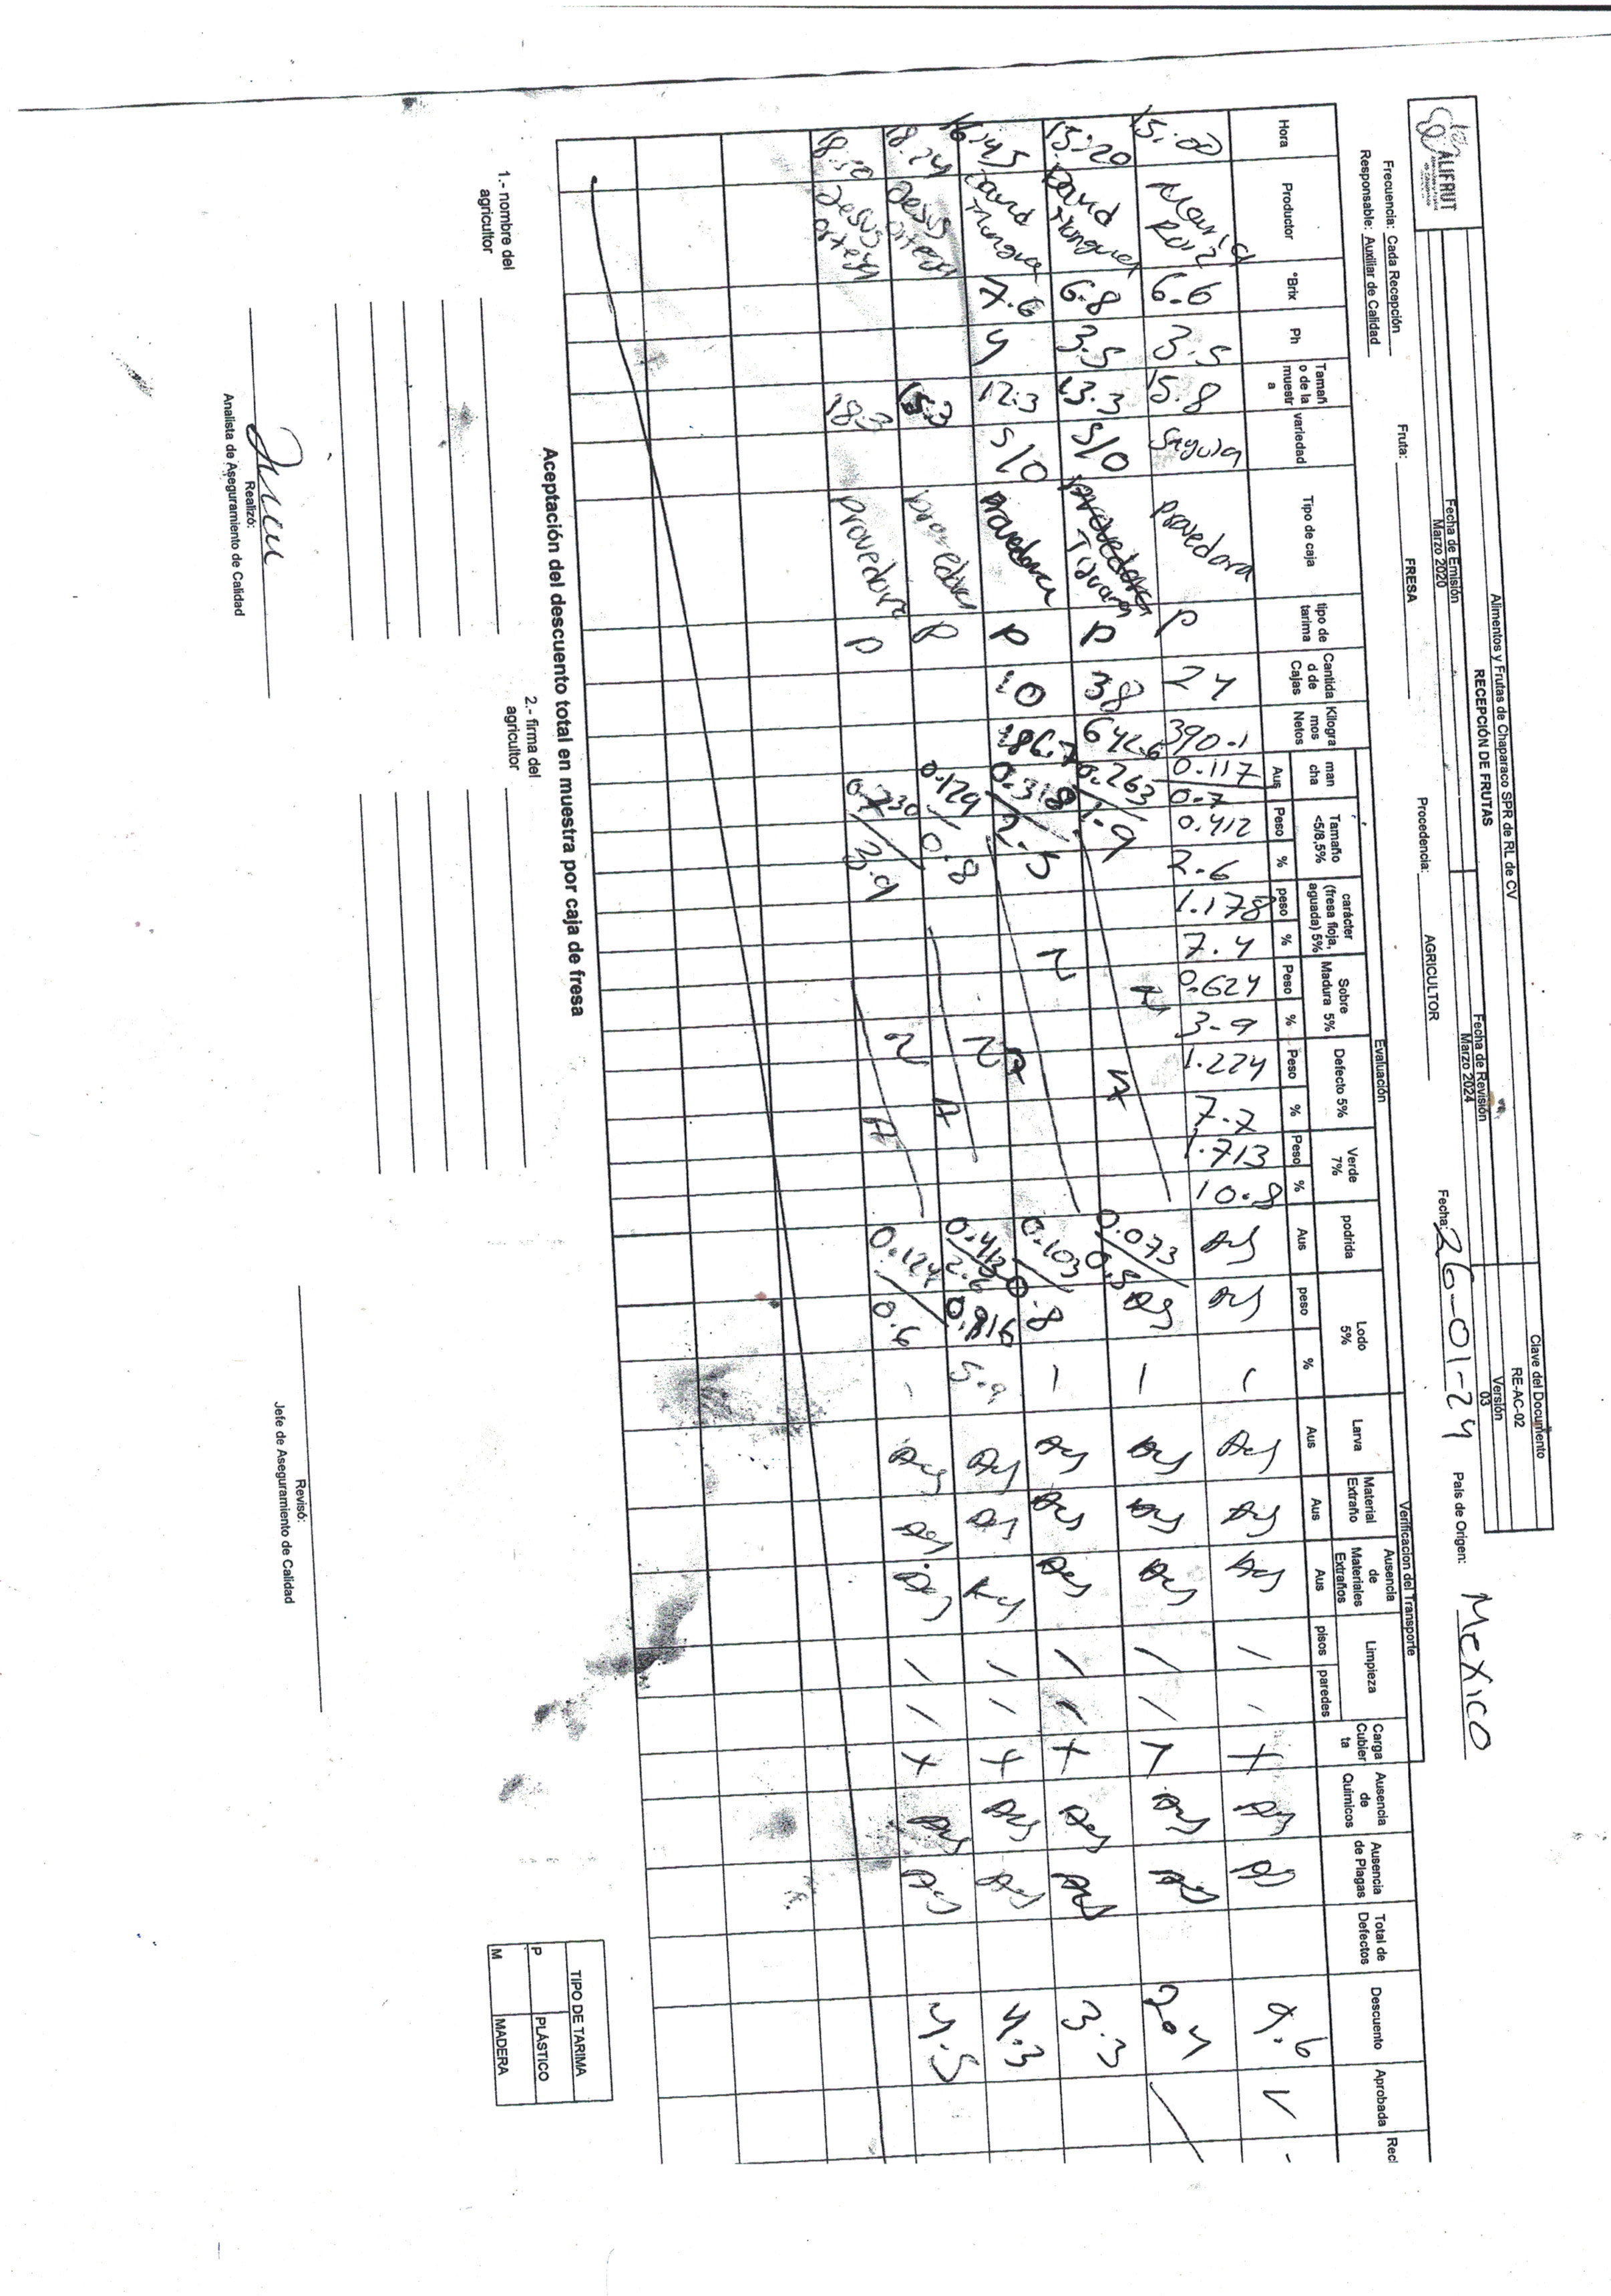 Alimentos y Frutas de Chaparaco SPR de RL de CV
RECEPCIÓN DE FRUTAS
Clave del Documento
RE-AC-02
Versión
03
Fecha de Emisión
Marzo 2020
Fecha de Revisión
Marzo 2024
ALIFRUT
Frecuencia: Cada Recepción
Fruta: FRESA
Procedencia: AGRICULTOR
Fecha: 26-01-24
País de Origen: MeXICO
Responsable: Auxiliar de Calidad
Evaluación
Verificacion del Transporte
Hora
Productor
°Brix
Ph
Tamañ o de la muestr a
variedad
Tipo de caja
tipo de tarima
Cantida d de Cajas
Kilogra mos Netos
man cha
Tamaño <5/8,5%
carácter (fresa floja, aguada) 5%
Sobre Madura 5%
Defecto 5%
Verde 7%
podrida
Lodo 5%
Larva
Material Extraño
Ausencia de Materiales Extraños
Limpieza
Carga Cubier ta
Ausencia de Quimicos
Ausencia de Plagas
Total de Defectos
Descuento
Aprobada
Aus Peso % peso % Peso % Peso % Peso % Aus peso % Aus Aus Aus pisos paredes
15:00 Maria Ruiz 6.6 3.5 15.8 Provedora P 24 390.1 0.117 0.7 0.412 2.6 1.178 7.4 0.624 3.9 1.224 7.7 1.713 10.8 Aus Aus - Aus Aus Aus / / X Aus Aus 9.6 ✓
15:20 David 6.8 3.5 13.3 S/0 P 38 642.6 0.263 1.9 N A 0.073 0.5 Aus - Aus Aus Aus / / X Aus Aus 2.4
16:45 David 7.6 4 12.3 S/0 Provedora P 10 186.7 0.318 2.5 N A 0.103 0.8 - Aus Aus Aus / / X Aus Aus 3.3
18:24 Jesus Ortega 15.3 Provedora P 0.129 0.8 N A 0.413 2.6 0.816 Aus Aus Aus / / X Aus Aus 4.3
18:50 Jesus Ortega 18.3 Provedora P 0.730 3.9 N A 0.124 0.6 - Aus Aus Aus / / X Aus Aus 4.5
Aceptación del descuento total en muestra por caja de fresa
1.- nombre del agricultor
2.- firma del agricultor
TIPO DE TARIMA
P PLÁSTICO
M MADERA
Realizó:
Analista de Aseguramiento de Calidad
Revisó:
Jefe de Aseguramiento de Calidad